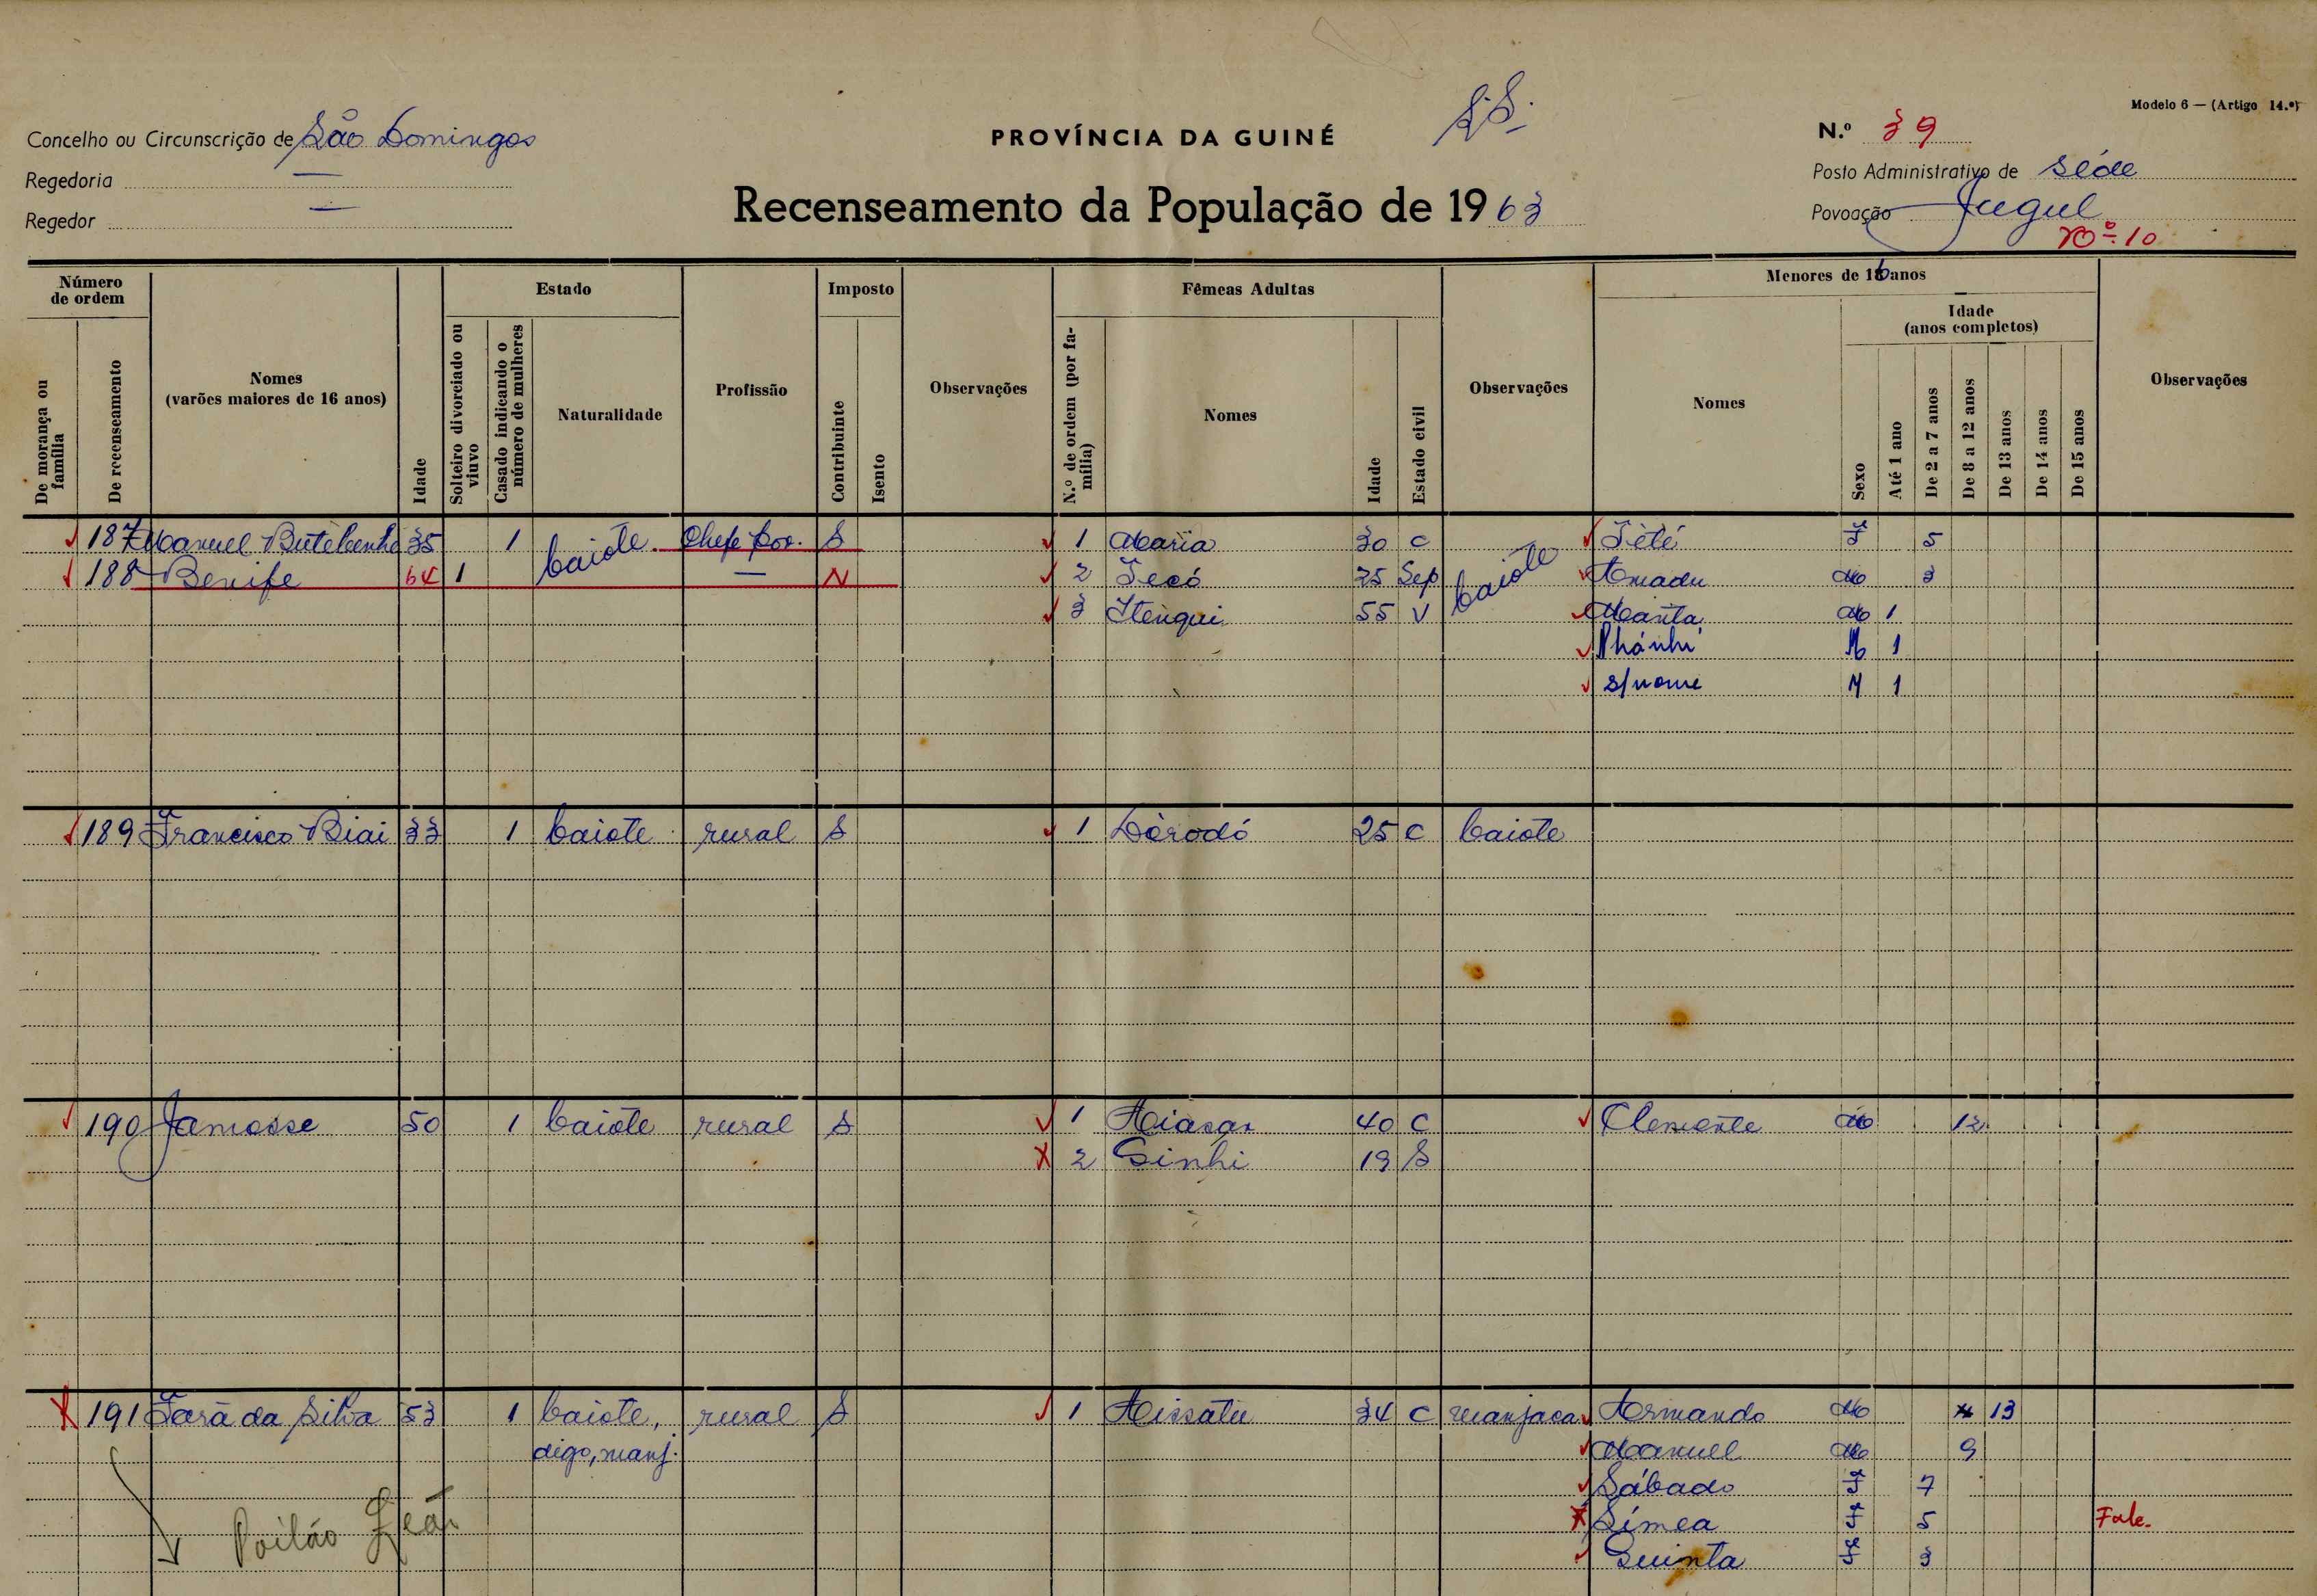 Modelo 6 — (Artigo 14.º)
Concelho ou Circunscrição de São Domingos
PROVÍNCIA DA GUINÉ
S.S.
N.º 39
Regedoria —
Posto Administrativo de Séde
Regedor —
Recenseamento da População de 1963
Povoação Jugul
Nº 10
Número de ordem
Estado
Imposto
Fêmeas Adultas
Menores de 16 anos
Idade
(anos completos)
De morança ou família
De recenseamento
Nomes
(varões maiores de 16 anos)
Idade
Solteiro divorciado ou viuvo
Casado indicando o número de mulheres
Naturalidade
Profissão
Contribuinte
Isento
Observações
N.º de ordem (por família)
Nomes
Idade
Estado civil
Observações
Nomes
Sexo
Até 1 ano
De 2 a 7 anos
De 8 a 12 anos
De 13 anos
De 14 anos
De 15 anos
Observações
187 Manuel 35 1 baiote Chefe pov. S 1 Maria 30 C baiote Tété F 5
188 Benife 64 1 — N 2 Tecó 25 Sep Amadu M 3
3 Itenqui 55 V M 1
Nhánhi M 1
s/nome M 1
189 Francisco Biai 33 1 baiote rural S 1 Dòrodó 25 C baiote
190 Jamosse 50 1 baiote rural S 1 40 C Clemente M 12
2 Sinhi 19 S
191 Fará da Silva 53 1 baiote, rural S 1 Aissatu 34 C manjaca Armando M 13
digo, manj. Manuel M 9
Sábado F 7
Poilão Leão
Símea F 5 Fale.
Quinta F 3